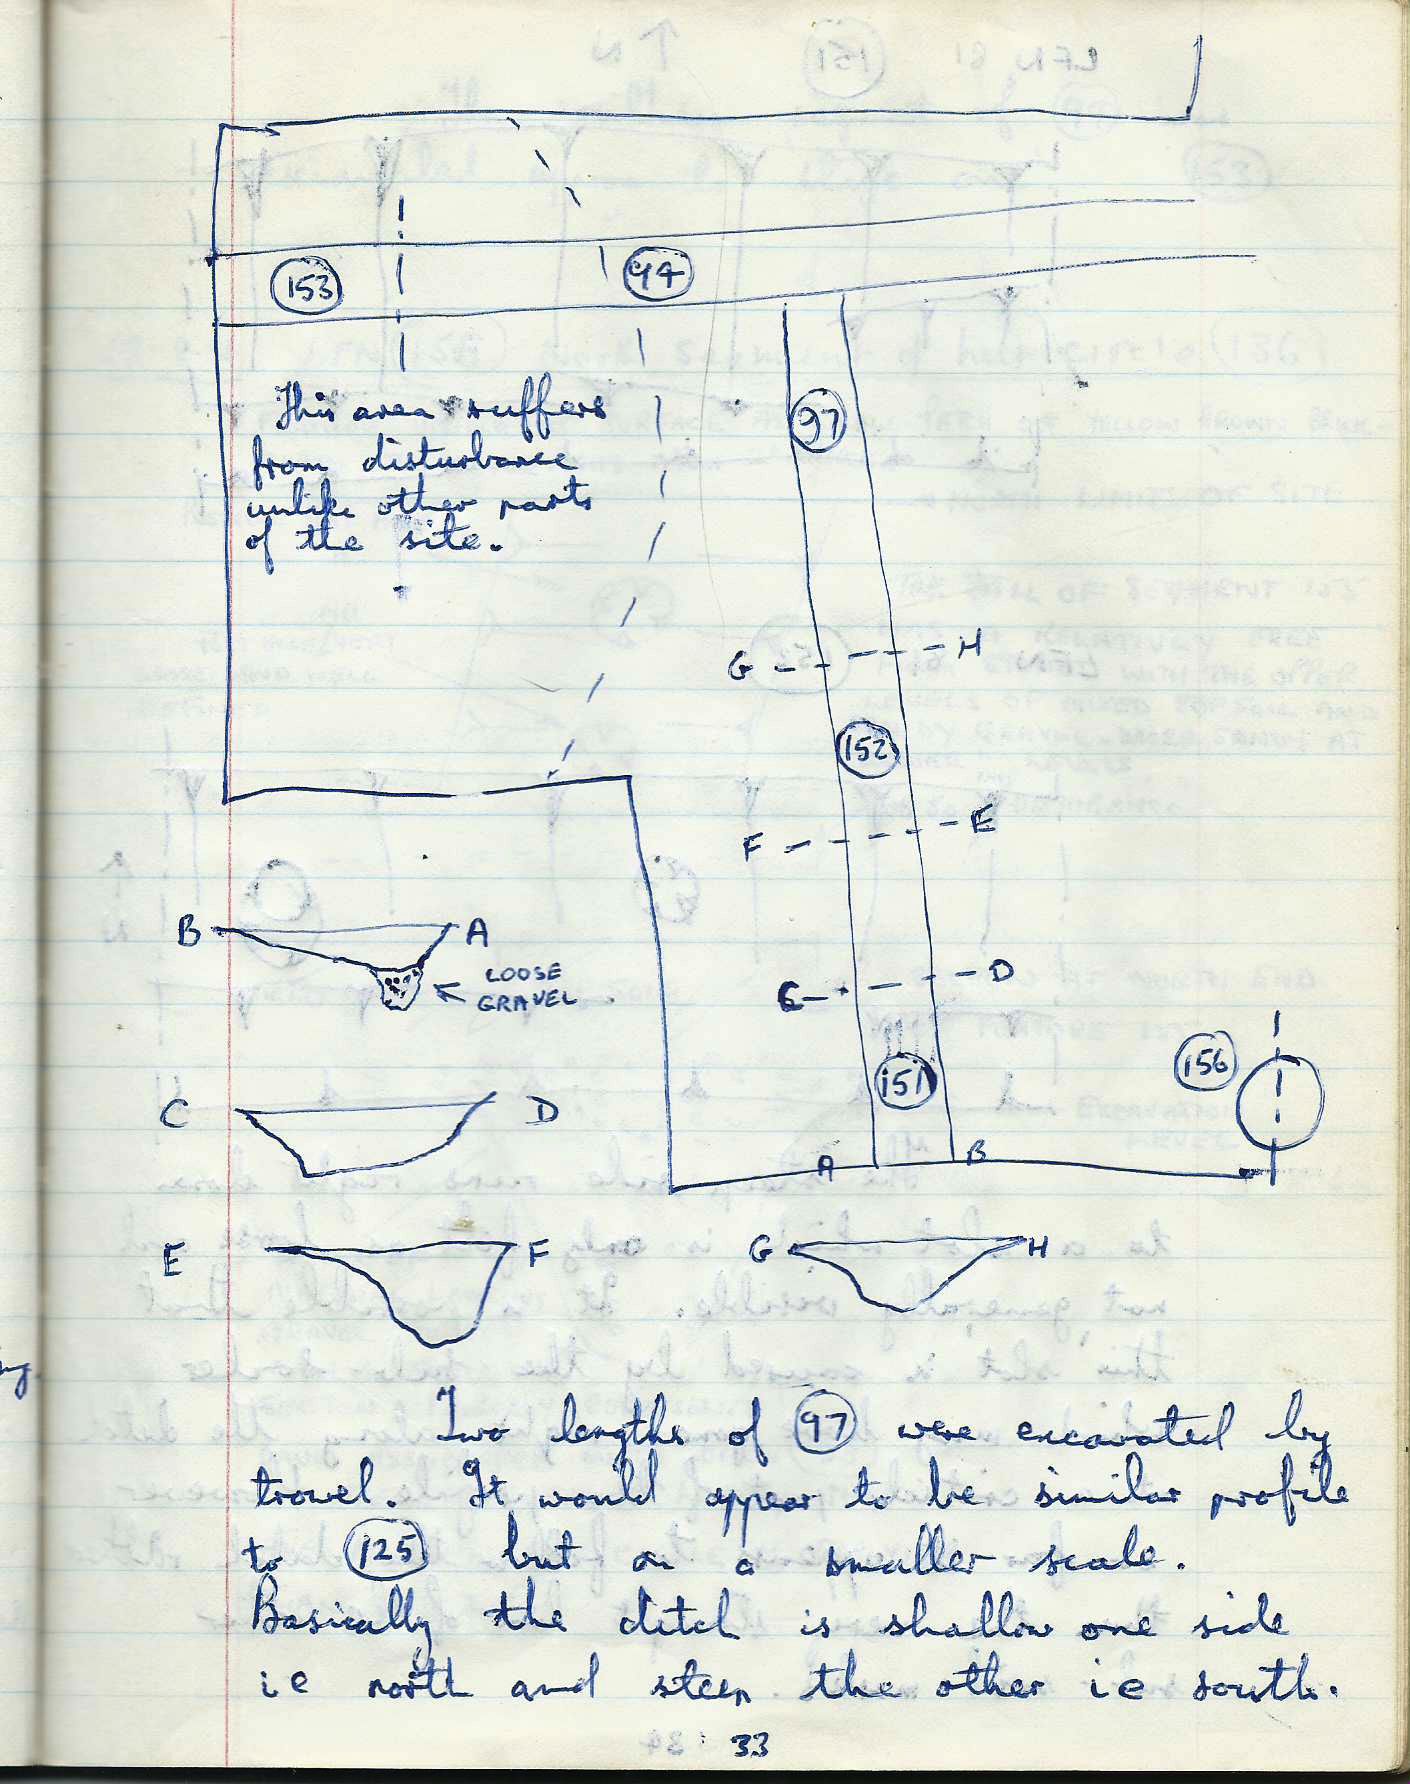 153
94
This area suffers
from disturbance
unlike other parts
of the site.
97
G
H
152
F
E
C
D
151
156
A
B
B
A
LOOSE
GRAVEL
C
D
E
F
G
H
Two lengths of 97 were excavated by
trowel. It would appear to be similar profile
to 125 but on a smaller scale.
Basically the ditch is shallow one side
ie north and steep the other ie south.
33